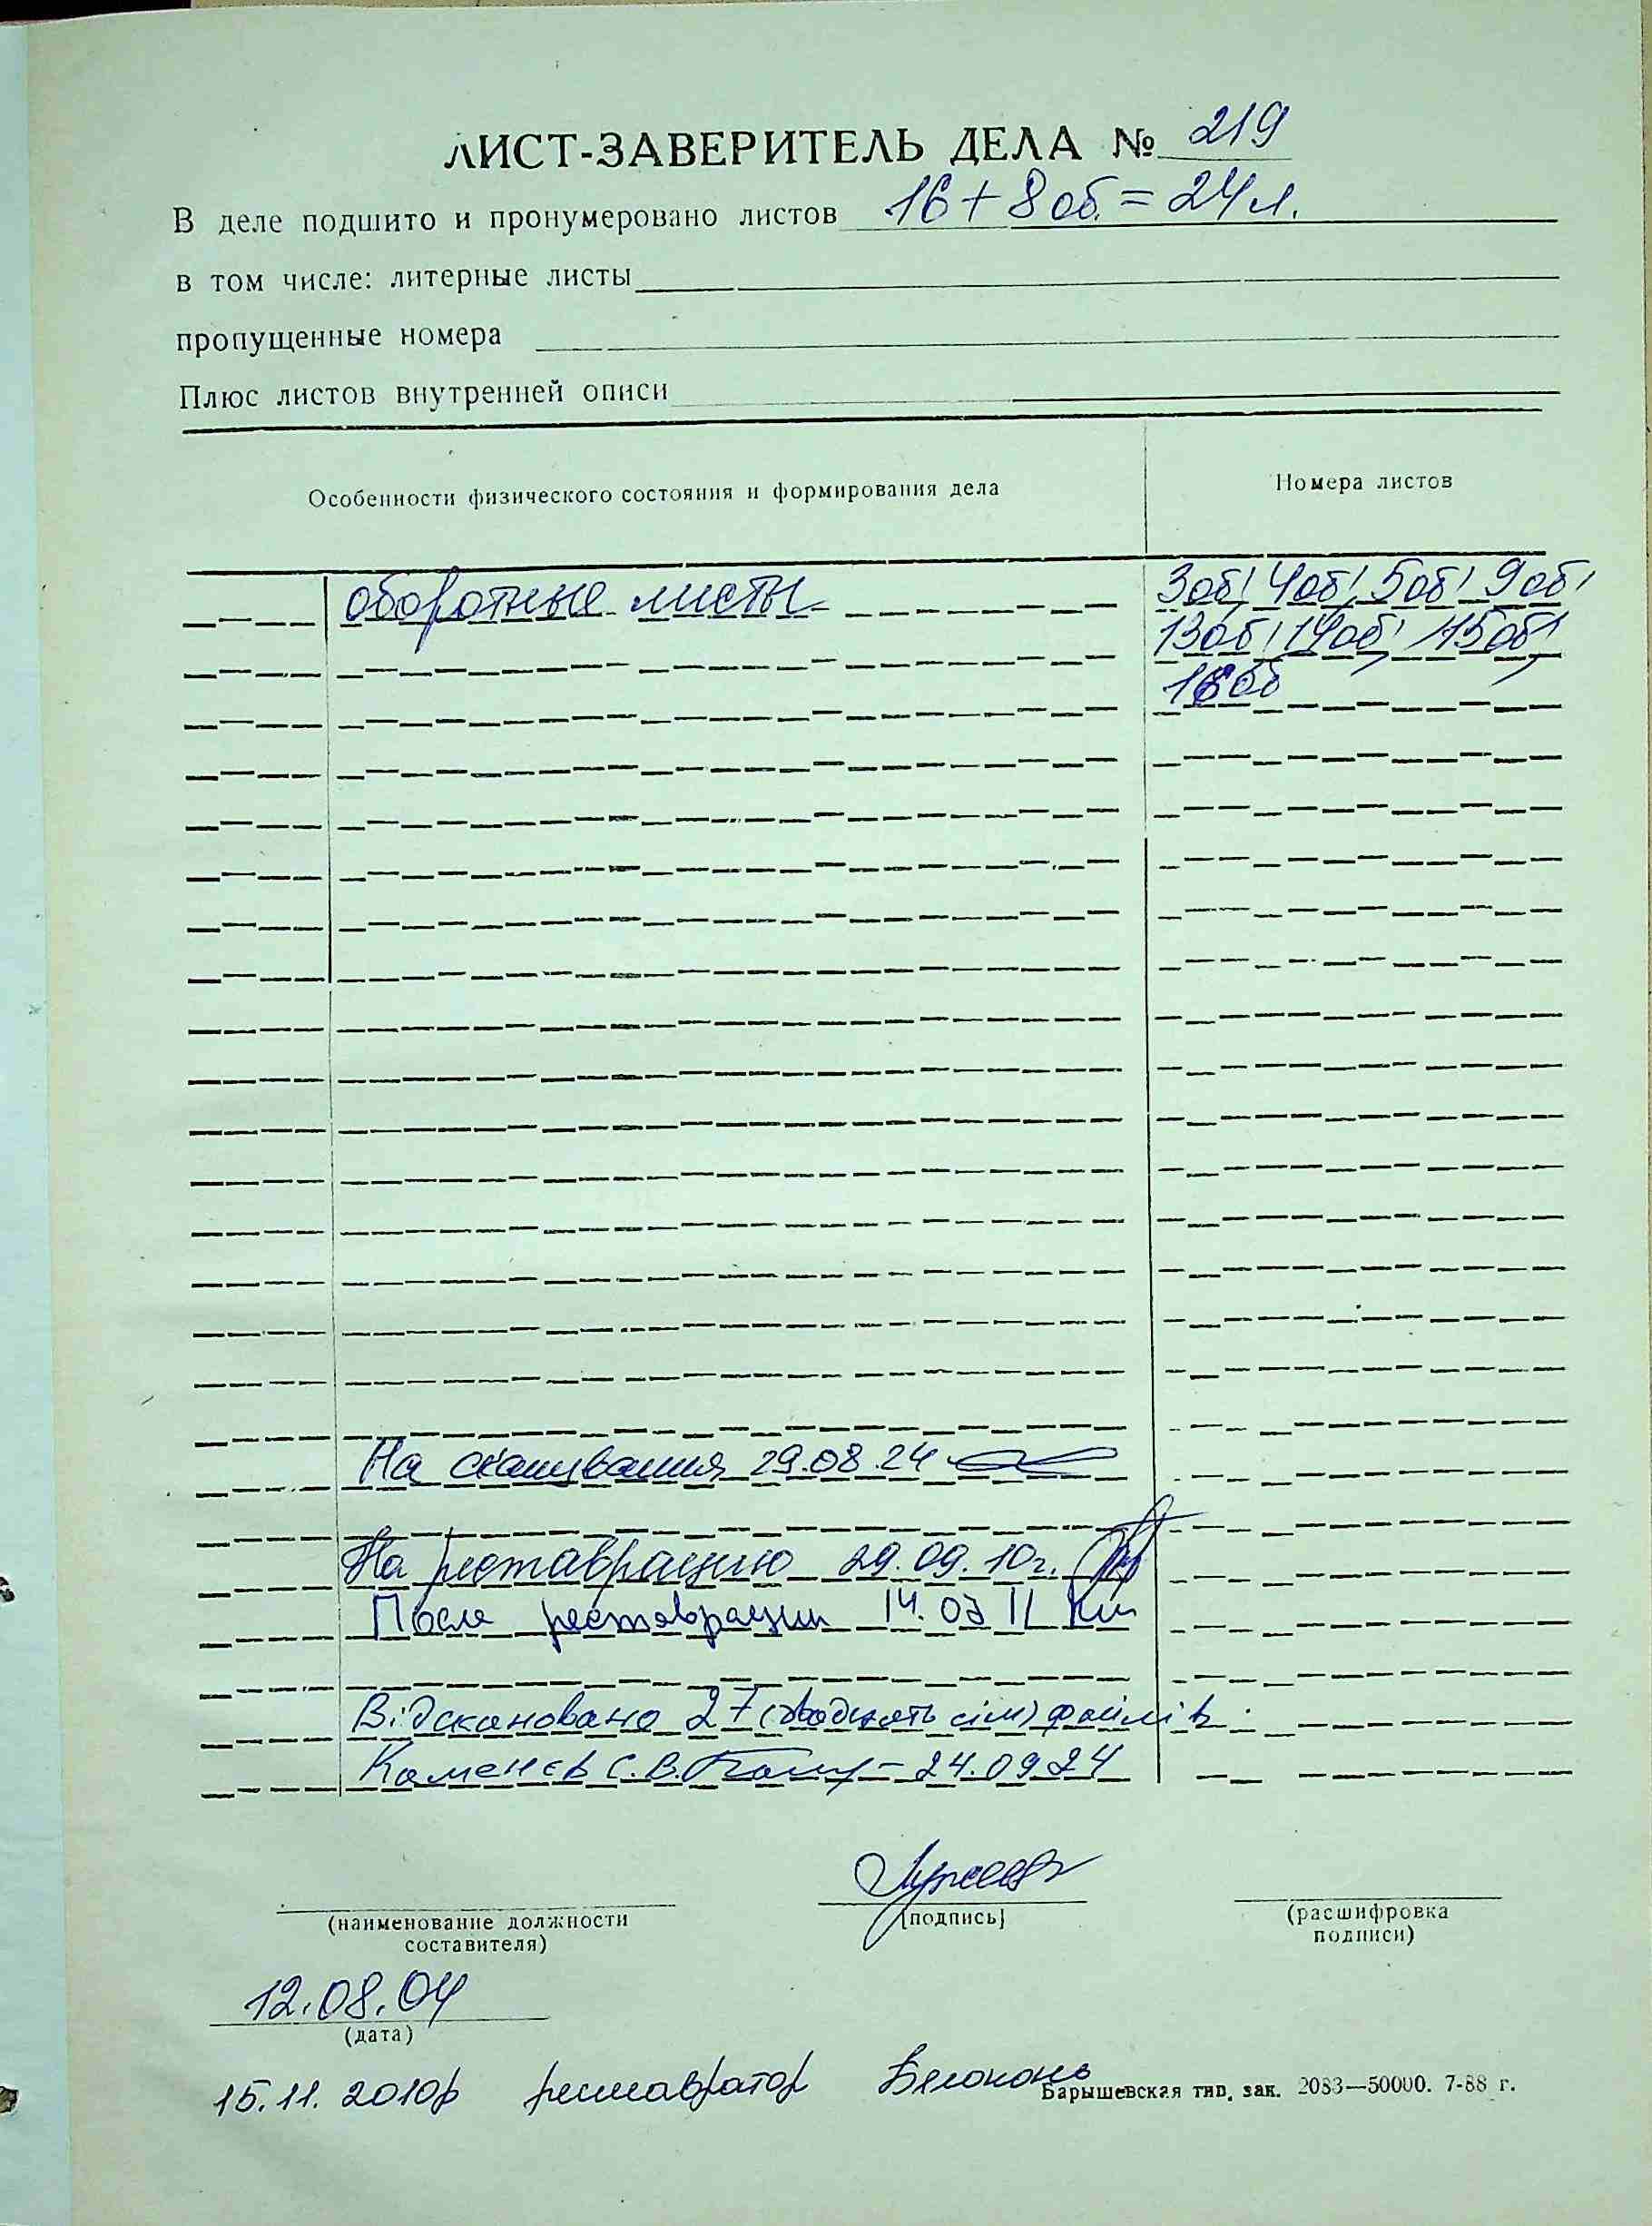 ЛИСТ-ЗАВЕРИТЕЛЬ ДЕЛА № 219
В деле подшито и пронумеровано листов 16 + 8 об. = 24 л.
в том числе: литерные листы
пропущенные номера
Плюс листов внутренней описи
Особенности физического состояния и формирования дела
Номера листов
оборотные листы
3об, 4об, 5об, 9об,
13об, 14об, 15об,
16об
На сканування 29.08.24
На реставрацию 29.09.10г.
После реставрации 14.03 11
Відскановано 27 (двадцять сім) файлів
Каменєв С.В. 24.09.24
(наименование должности
составителя)
(подпись)
(расшифровка
подписи)
12.08.04
(дата)
15.11.2010р реставратор Белоконь
Барышевская тип. зак. 2083—50000. 7-88 г.